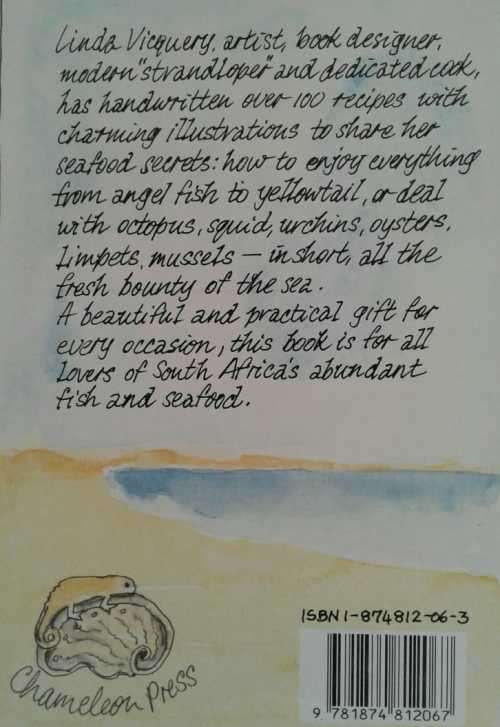 Linda Vicquery, artist, book designer,
modern "strandloper" and dedicated cook,
has handwritten over 100 recipes with
charming illustrations to share her
seafood secrets: how to enjoy everything
from angel fish to yellowtail, or deal
with octopus, squid, urchins, oysters,
limpets, mussels — in short, all the
fresh bounty of the sea.
A beautiful and practical gift for
every occasion, this book is for all
lovers of South Africa's abundant
fish and seafood.
Chameleon Press
ISBN 1-874812-06-3
9 781874 812067